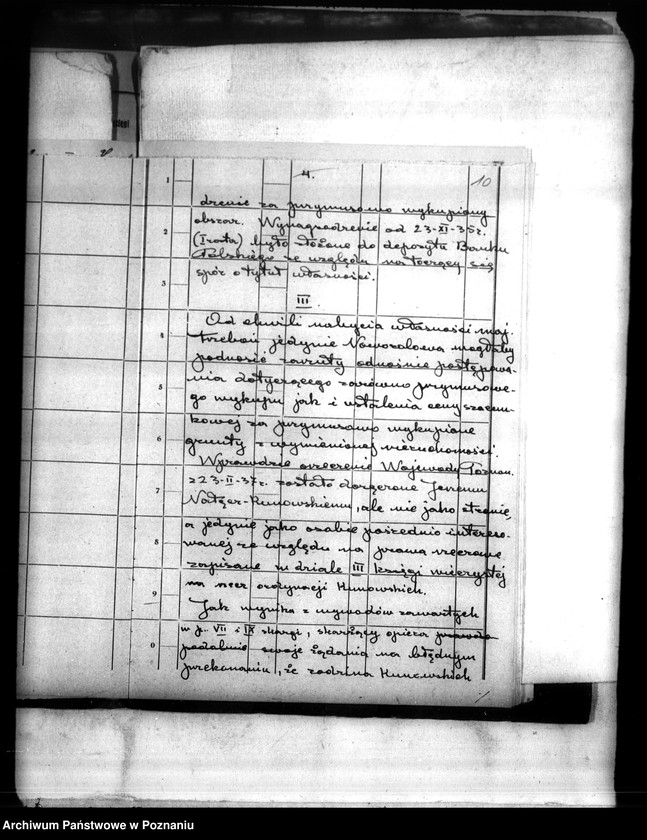 4.
10
drenie za przymusowo wykupiony
obszar. Wynagrodzenie od 23-XI-35 r.
było złożone do depozytu Banku
Polskiego ze względu na toczący się
spór o tytuł własności.
III.
Od chwili nabycia własności maj.
Trzebań jedynie mogłaby
podnosić zarzuty odnośnie postępowa-
nia dotyczącego zarówno przymusowe-
go wykupu jak i ustalenia ceny szacun-
kowej za przymusowo wykupione
grunty z wymienionej nieruchomości.
Wprawdzie orzeczenie Wojewody Poznań.
z 23-II-37 r. zostało doręczone Jerzemu
, ale nie jako stronie,
a jedynie jako osobie pośrednio intereso-
wanej ze względu na prawa rzeczowe
zapisane w dziale III księgi wieczystej
na rzecz ordynacji
Jak wynika z wywodów zawartych
w p. VII i IX skargi, skarżący opiera
swoje żądania na błędnym
przekonaniu, że rodzina
1
2
3
4
5
6
7
8
9
0
Archiwum Państwowe w Poznaniu